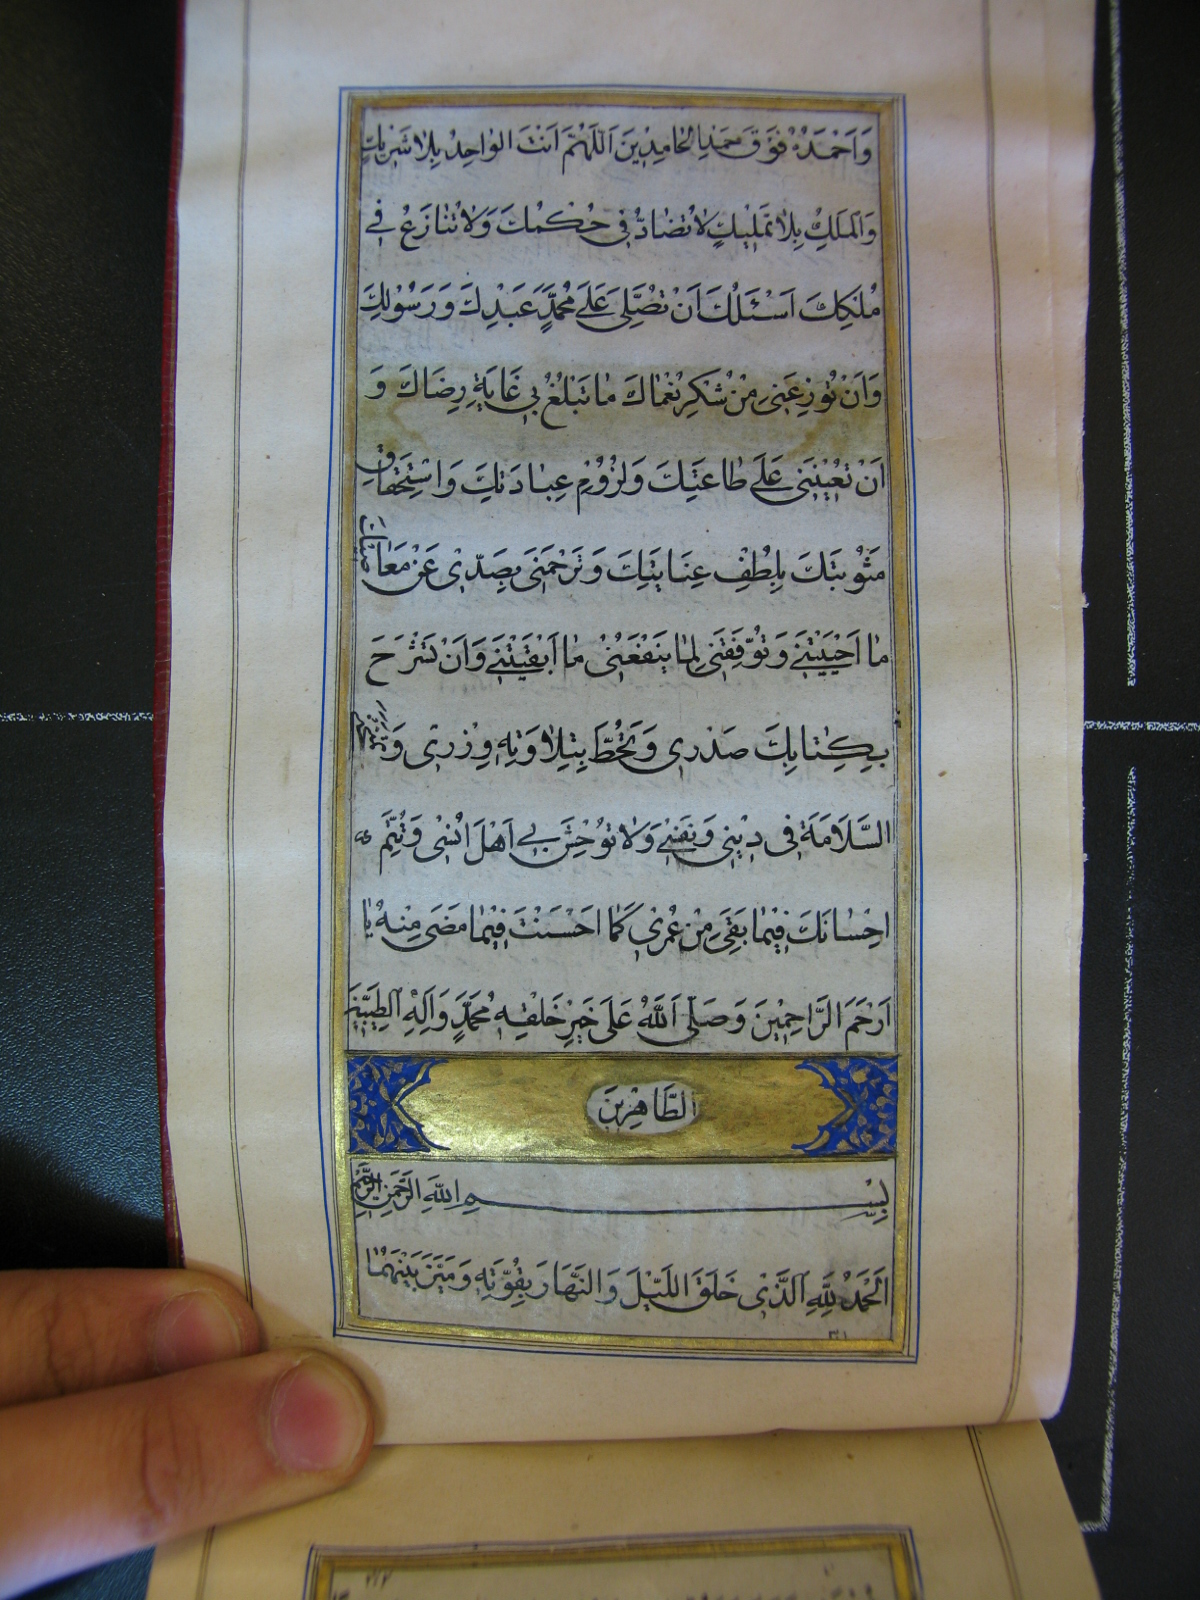 وَاَحْمَدُهُ فَوْقَ حَمْدِ الْحَامِدِينَ اَللّٰهُمَّ اَنْتَ الوَاحِدُ بِلَا شَرِيكٍ
وَالْمَلِكُ بِلَا تَمْلِيكٍ لَا تُضَادُّ فِي حُكْمِكَ وَلَا تُنَازَعُ فِي
مُلْكِكَ اَسْئَلُكَ اَنْ تُصَلِّىَ عَلَى مُحَمَّدٍ عَبْدِكَ وَرَسُولِكَ
وَاَنْ تُوزِعَنِى مِنْ شُكْرِ نُعْمَاكَ مَا تَبْلُغُ بِى غَايَةَ رِضَاكَ وَ
اَنْ تُعِينَنِى عَلَى طَاعَتِكَ وَلُزُومِ عِبَادَتِكَ وَاسْتِحْقَاقِ
مَثُوبَتِكَ بِلُطْفِ عِنَايَتِكَ وَتَرْحَمَنِى بِصَدِّى عَنْ مَعَاصِيكَ
مَا اَحْيَيْتَنِى وَتُوَفِّقَنِى لِمَا يَنْفَعُنِى مَا اَبْقَيْتَنِى وَاَنْ تَشْرَحَ
بِكِتَابِكَ صَدْرِى وَتَحُطَّ بِتِلَاوَتِهِ وِزْرِى وَتَمْنَحَنِى
السَّلَامَةَ فِى دِينِى وَنَفْسِى وَلَا تُوحِشَ بِى اَهْلَ اُنْسِى وَتُتِمَّ
اِحْسَانَكَ فِيمَا بَقِىَ مِنْ عُمْرِى كَمَا اَحْسَنْتَ فِيمَا مَضَى مِنْهُ يَا
اَرْحَمَ الرَّاحِمِينَ وَصَلَّى اللّٰهُ عَلَى خَيْرِ خَلْقِهِ مُحَمَّدٍ وَآلِهِ الطَّيِّبِينَ
الطَّاهِرِينَ
بِسْمِ اللّٰهِ الرَّحْمٰنِ الرَّحِيمِ
اَلْحَمْدُ لِلّٰهِ الَّذِى خَلَقَ اللَّيْلَ وَالنَّهَارَ بِقُوَّتِهِ وَمَيَّزَ بَيْنَهُمَا